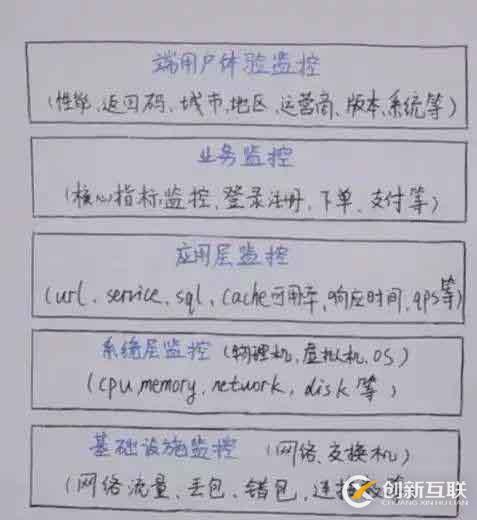 端用户体验监控
(性能、返回码、城市、地区、运营商、版本、系统等)
业务监控
(核心指标监控、登录注册、下单、支付等)
应用层监控
(url、service、sql、cache可用率、响应时间、qps等)
系统层监控 (物理机、虚拟机、OS)
(cpu、memory、network、disk等)
基础设施监控 (网络、交换机)
(网络流量、丢包、错包、连接
创新互联